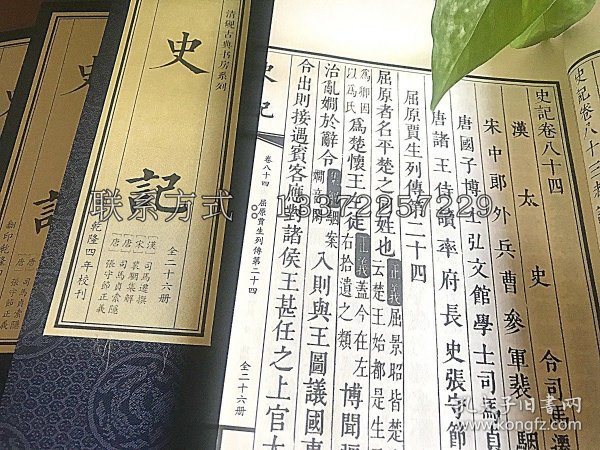 史記卷八十四
漢 太 史 令司馬遷
宋中郎外兵曹參軍裴駰
唐國子博士弘文館學士司馬貞
唐諸王侍讀率府長史張守節
屈原賈生列傳第二十四
屈原者名平楚之同姓也
正義
屈景昭皆楚
云楚王始都是生
為卿因
以為氏
為楚懷王左徒
正義
蓋今在左
右拾遺之類
博聞
治亂嫻於辭令
嫻音閑
入則與王圖議國事
令出則接遇賓客應對諸侯王甚任之上官大
史記
卷八十四
屈原賈生列傳第二十四
全二十六册
清砚古典书房系列
史
記
全二十六册
漢 司馬遷撰
宋 裴駰集解
唐 司馬貞索隱
唐 張守節正義
乾隆四年校刊
史記卷八十三
联系方式 13372257229
孔子旧书网